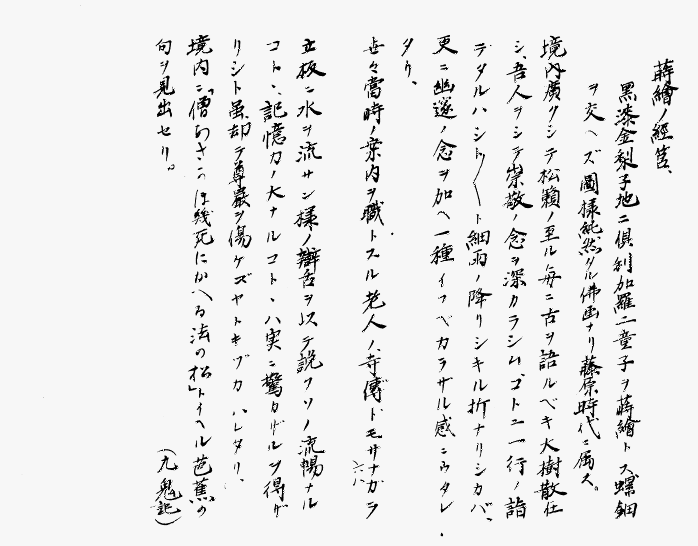 蒔繪ノ經筥、
黒漆金梨子地ニ倶利加羅二童子ヲ蒔繪トス、螺鈿
ヲ交ヘズ圖様純然タル佛画ナリ藤原時代ニ属ス。
境内廣クシテ松籟ノ至ル毎ニ古ヲ語ルベキ大樹散在
シ、吾人ヲシテ崇敬ノ念ヲ深カラシム、コトニ一行ノ詣
デタルハシト〱ト細雨ノ降リシキル折ナリシカバ、
更ニ幽邃ノ念ヲ加ヘ一種イフベカラザル感ニウタレ
タリ、
世々當時ノ案内ヲ職トスル老人ノ、寺傳ドモサナガラ
立板ニ水ヲ流サン様ノ辯舌ヲ以テ説クソノ流暢ナル
コト、記憶力ノ大ナルコト、ハ実ニ驚カザルヲ得ザ
リシト虽却テ尊嚴ヲ傷ケズヤトキヅカハレタリ、
境内ニ「僧あさかほ幾死にかへる法の松」トイヘル芭蕉の
句ヲ見出セリ。
(九鬼記)
六八